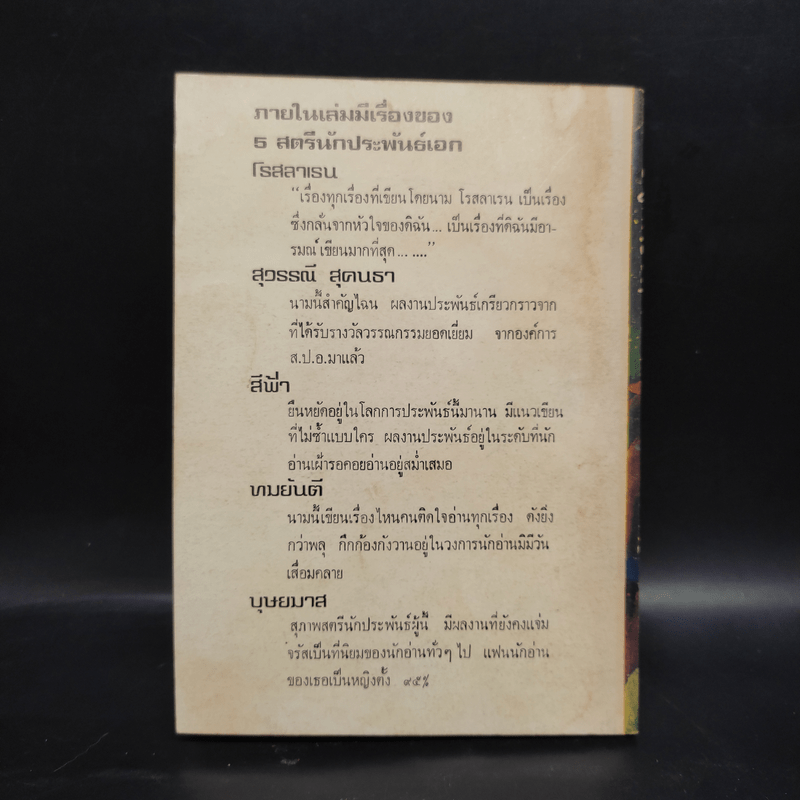 ภายในเล่มมีเรื่องของ
๕ สตรีนักประพันธ์เอก
โรสลาเรน
“เรื่องทุกเรื่องที่เขียนโดยนาม โรสลาเรน เป็นเรื่อง
ซึ่งกลั่นจากหัวใจของดิฉัน... เป็นเรื่องที่ดิฉันมีอา-
รมณ์ เขียนมากที่สุด... ....”
สุวรรณี สุคนธา
นามนี้สำคัญไฉน ผลงานประพันธ์เกรียวกราวจาก
ที่ได้รับรางวัลวรรณกรรมยอดเยี่ยม จากองค์การ
ส.ป.อ.มาแล้ว
สีฟ้า
ยืนหยัดอยู่ในโลกการประพันธ์นี้มานาน มีแนวเขียน
ที่ไม่ซ้ำแบบใคร ผลงานประพันธ์อยู่ในระดับที่นัก
อ่านเฝ้ารอคอยอ่านอยู่สม่ำเสมอ
ทมยันตี
นามนี้เขียนเรื่องไหนคนติดใจอ่านทุกเรื่อง ดังยิ่ง
กว่าพลุ กึกก้องกังวานอยู่ในวงการนักอ่านมิมีวัน
เสื่อมคลาย
บุษยมาส
สุภาพสตรีนักประพันธ์ผู้นี้ มีผลงานที่ยังคงแจ่ม
จรัสเป็นที่นิยมของนักอ่านทั่วๆ ไป แฟนนักอ่าน
ของเธอเป็นหญิงตั้ง ๙๕%